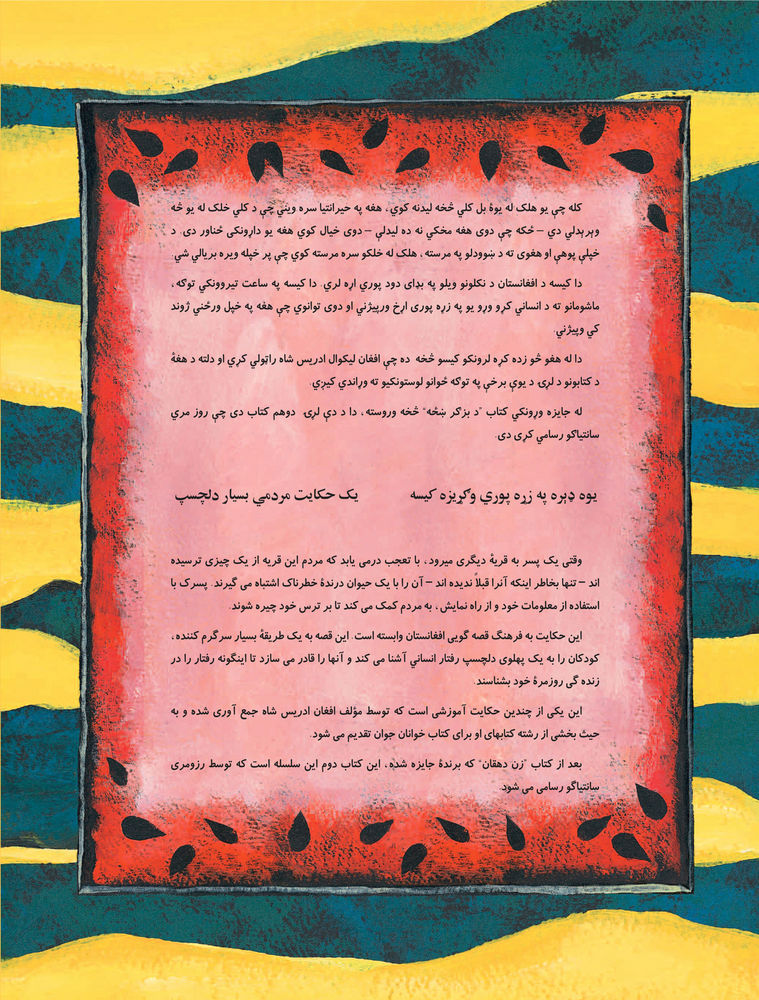 کله چې يو هلک له يوۀ بل کلي څخه ليدنه کوي، هغه په حيرانتيا سره ويني چې د کلي خلک له يو څه
وېرېدلي دي – ځکه چې دوی هغه مخکې نه ده ليدلې – دوی خيال کوي هغه يو داړونکی ځناور دی. د
خپلې پوهې او هغوی ته د ښوودلو په مرسته، هلک له خلکو سره مرسته کوي چې پر خپله ويره بريالي شي.
دا کيسه د افغانستان د نکلونو ويلو په بډای دود پورې اړه لري. دا کيسه په ساعت تيروونکي توګه،
ماشومانو ته د انساني کړو وړو يو په زړه پورې اړخ ورپيژني او دوی توانوي چې هغه په خپل ورځني ژوند
کې وپيژني.
دا له هغو څو زده کړه لرونکو کيسو څخه ده چې افغان ليکوال ادريس شاه راټولې کړي او دلته د هغۀ
د کتابونو د لړۍ د يوې برخې په توګه ځوانو لوستونکيو ته وړاندې کيږي.
له جايزه وړونکي کتاب "د بزګر ښځه" څخه وروسته، دا د دې لړۍ دوهم کتاب دی چې روز مري
سانتياګو رسامي کړی دی.
يوه ډېره په زړه پورې وګړيزه کيسه
یک حکایت مردمي بسیار دلچسپ
وقتی یک پسر به قریۀ دیگری میرود، با تعجب درمی یابد که مردم این قریه از یک چیزی ترسیده
اند – تنها بخاطر اینکه آنرا قبلاً ندیده اند – آن را با یک حیوان درندۀ خطرناک اشتباه می گیرند. پسرک با
استفاده از معلومات خود و از راه نمایش، به مردم کمک می کند تا بر ترس خود چیره شوند.
این حکایت به فرهنگ قصه گویی افغانستان وابسته است. این قصه به یک طریقۀ بسیار سرگرم کننده،
کودکان را به یک پهلوی دلچسپ رفتار انساني آشنا می کند و آنها را قادر می سازد تا اینگونه رفتار را در
زنده گی روزمرۀ خود بشناسند.
این یکی از چندین حکایت آموزشی است که توسط مؤلف افغان ادریس شاه جمع آوری شده و به
حیث بخشی از رشته کتابهای او برای کتاب خوانان جوان تقدیم می شود.
بعد از کتاب "زن دهقان" که برندۀ جایزه شده، این کتاب دوم این سلسله است که توسط رزومری
سانتیاگو رسامی می شود.